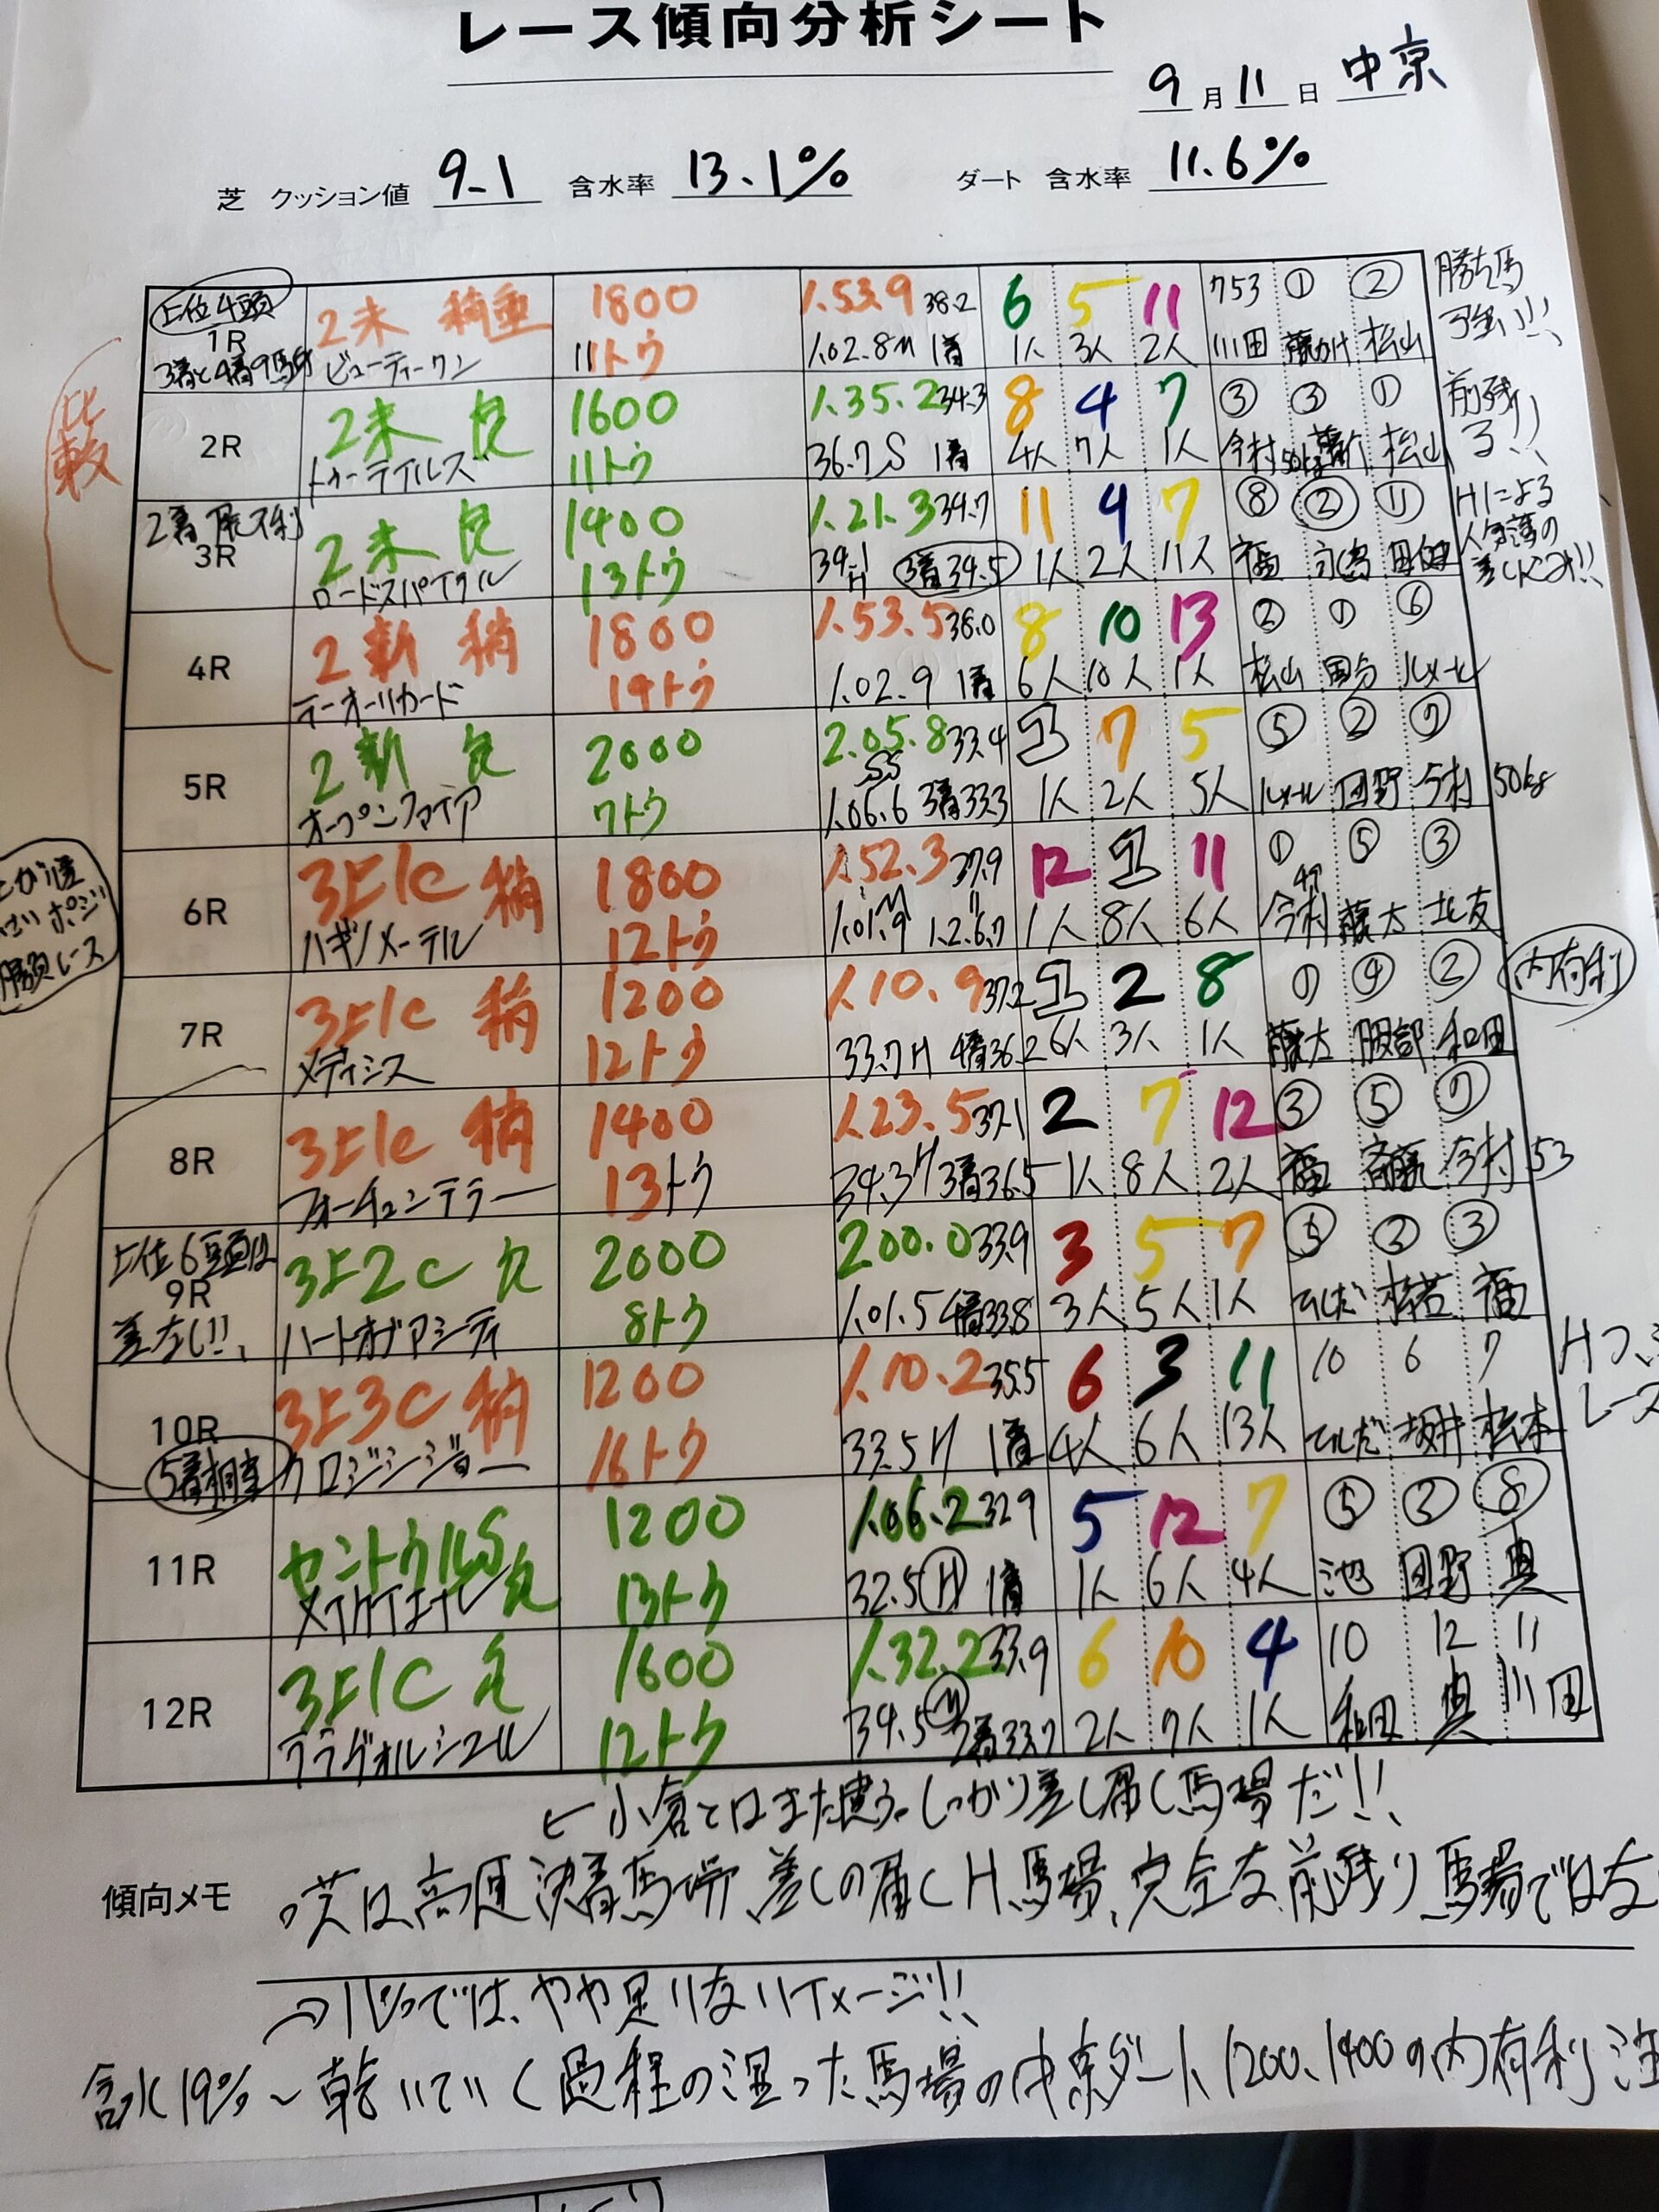 レース傾向分析シート
9月11日 中京
芝 クッション値 9.1 含水率 13.1% ダート 含水率 11.6%
上位4頭 2未 稍重 1800 1.53.9 38.2 6 5 11 753 ① ② 勝ち馬
1R ビューティーワン 11トウ 1.02.8M 1着 1人 3人 2人 川田 松山 強い!!
3着と4着9馬身
比較
2R 2未 良 1600 1.35.2 34.3 8 4 7 ③ ③ ① 前残り!!
トゥーテイルズ 11トウ 36.7S 1着 4人 7人 1人 今村 50kg 松山
3R 2未 良 1400 1.21.3 34.7 11 4 7 ⑧ ② ⑪ Hによる
ロードスパイラル 13トウ 34.1 H 3着34.5 1人 2人 11人 福 永島 人気薄の
差しくみ!!
4R 2新 稍 1800 1.53.5 38.0 8 10 13 ② ① ⑥
テーオーリカード 14トウ 1.02.9 1着 6人 10人 1人 松山 国分 ルメール
5R 2新 良 2000 2.05.8 33.4 1 7 5 ⑤ ② ⑦
オープンファイア 7トウ SS 1.06.6 3着33.3 1人 2人 5人 ルメール 団野 今村 50kg
6R 3上1c 稍 1800 1.52.3 37.9 12 1 11 ① ⑤ ③
ハギノメーテル 12トウ 1.01.9 M 1.2.6.7 1人 8人 6人 今村 藤大 北友
勝負レース
7R 3上1c 稍 1200 1.10.9 37.2 1 2 8 ① ④ ② 内有利
メディシス 12トウ 33.7H 4着36.2 6人 3人 1人 藤大 服部 和田
8R 3上1c 稍 1400 1.23.5 37.1 2 7 12 ③ ⑤ ⑦
フォーチュンテラー 13トウ 34.3H 3着36.5 1人 8人 2人 福 斎藤 今村 53
上位6頭は 3上2c 良 2000 2.00.0 33.9 3 5 7 ⑤ ② ③
9R ハートオブアシティ 8トウ 1.01.5 4着33.8 3人 5人 1人 松若 福
差なし!!
10R 3上3c 稍 1200 1.10.2 35.5 6 3 11 10 6 7
5着相当 クロジシジョー 16トウ 33.5H 1着 4人 6人 13人 坂井 松本 レース
11R セントウルS 良 1200 1.06.2 32.9 5 12 7 ⑤ ③ ⑧
メイケイエール 13トウ 32.5 H 1着 1人 6人 4人 池 団野 典
12R 3上1C 良 1600 1.32.2 33.9 6 10 4 10 12 11
ララヴォルシエル 12トウ 34.5 M 33.7 2人 7人 1人 和田 典 川田
小倉とはまた違う。しっかり差し届く馬場だ!!
傾向メモ 芝は高速決着馬場、差しの届くH馬場、完全な前残り馬場ではな
→ では、やや足りないイメージ!!
含水19%~乾いていく過程の湿った馬場の中京ダート1200、1400の内有利